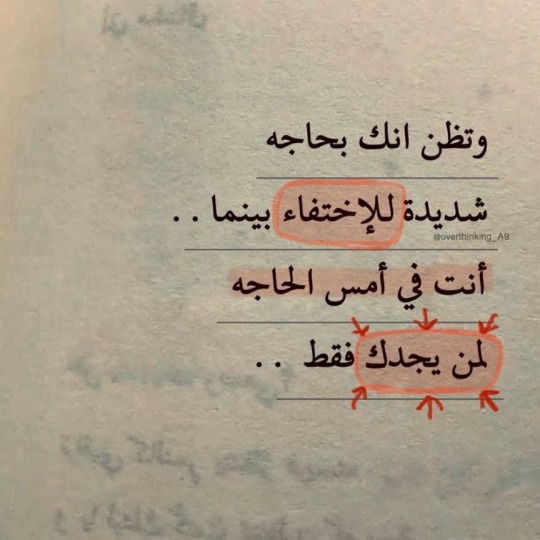 وتظن انك بحاجه
شديدة للإختفاء بينما . .
@overthinking_A9
أنت في أمس الحاجه
لمن يجدك فقط . .